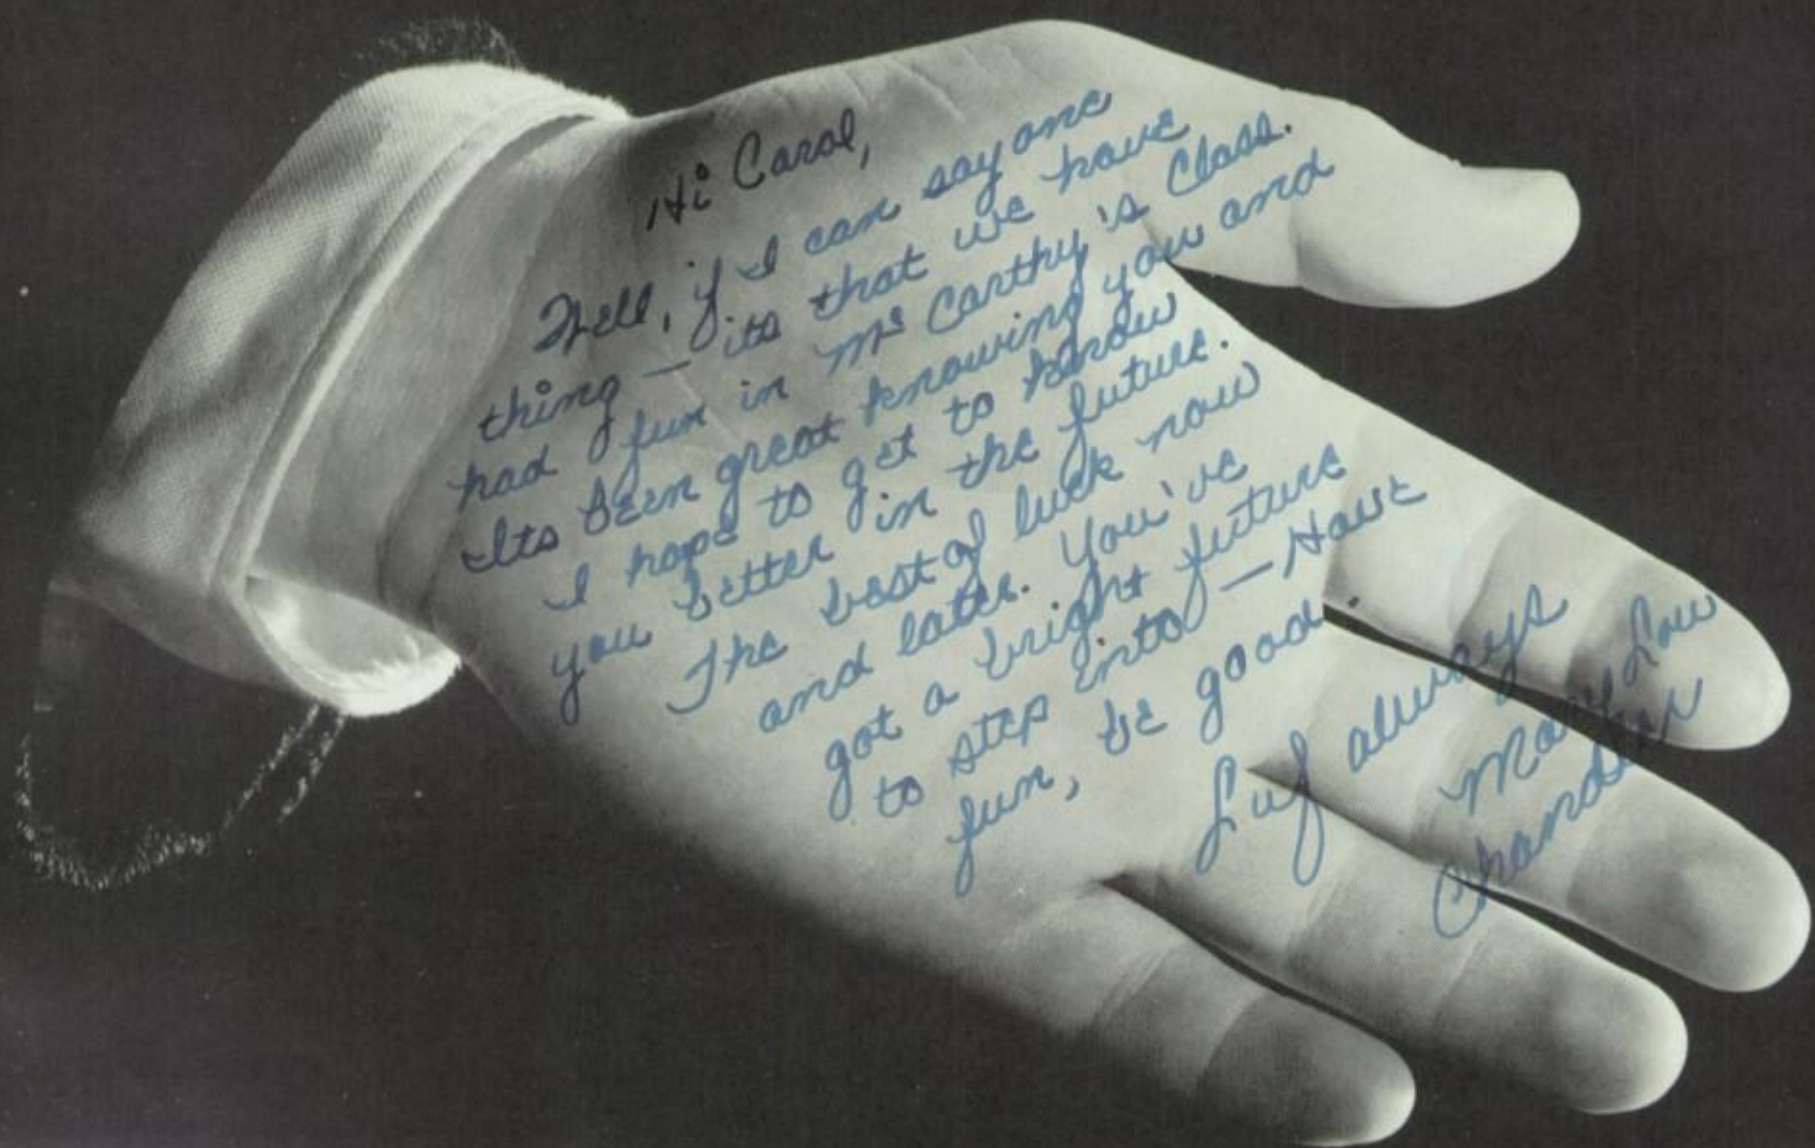 Hi Carol,
Well, if I can say one
thing — its that we have
had fun in Mc Carthy's Class.
Its been great knowing you and
I hope to get to know
you better in the future.
The best of luck now
and later. You've
got a bright future
to step into — Have
fun, be good
Luf always
Mary Lou
Chandler